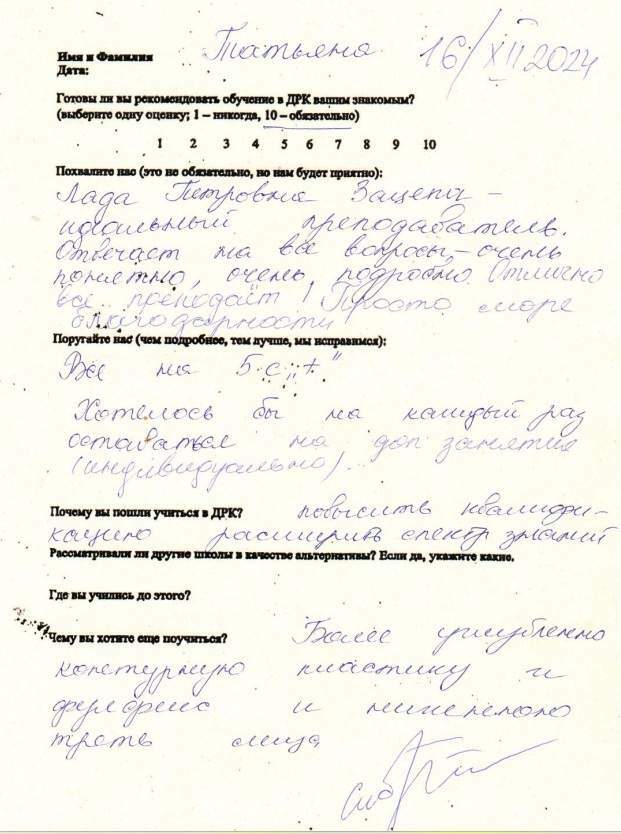 Имя и Фамилия Татьяна 16/XII 2024
Дата:
Готовы ли вы рекомендовать обучение в ДРК вашим знакомым?
(выберите одну оценку; 1 – никогда, 10 – обязательно)
1 2 3 4 5 6 7 8 9 10
Похвалите нас (это не обязательно, но нам будет приятно):
Лада Петровна Зацепи-
идеальный преподаватель.
Отвечает на все вопросы, – очень
понятно, очень подробно. Отлично
всё преподаёт! Просто море
благодарности!
Поругайте нас (чем подробнее, тем лучше, мы исправимся):
Все на 5 с „+"
Хотелось бы на каждый раз
оставаться на доп занятия
(индивидуально).
Почему вы пошли учиться в ДРК? повысить квалифи-
кацию расширить спектр знаний
Рассматривали ли другие школы в качестве альтернативы? Если да, укажите какие.
Где вы учились до этого?
Чему вы хотите еще поучиться? Более углубленно
контурную пластику и
фулфейс и нижнюю
треть лица